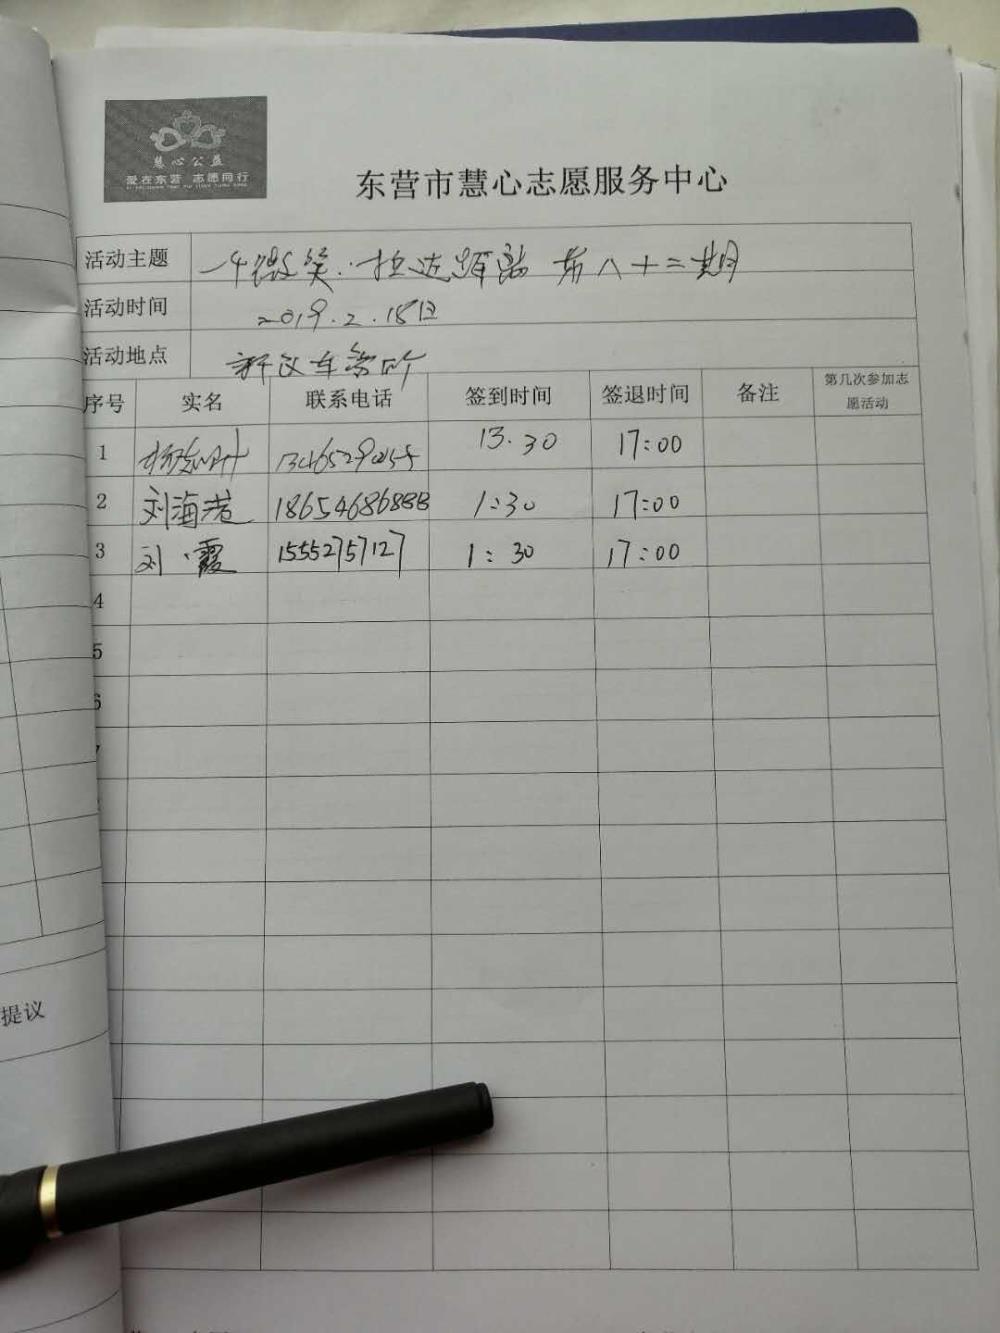 慧心公益
爱在东营 志愿同行
东营市慧心志愿服务中心
活动主题 一个微笑·拉达驿站 第八十二期
活动时间 2019.2.18日
活动地点 车管所
序号 实名 联系电话 签到时间 签退时间 备注 第几次参加志愿活动
1 13.30 17:00
2 刘海 18654686888 1:30 17:00
3 刘霞 15552757127 1:30 17:00
4
5
6
提议